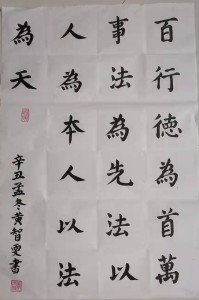 百行德為首萬
事法為先法以
人為本人以法
為天
辛丑孟冬黄智雯書